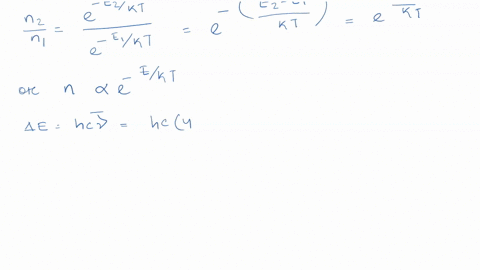 n₂/n₁ = e^(-E₂/KT) / e^(-E₁/KT) = e^-((E₂-E₁)/KT) = e^(-/KT)
n ∝ e^(-E/KT)
ΔE = hcν̄ = hc(4